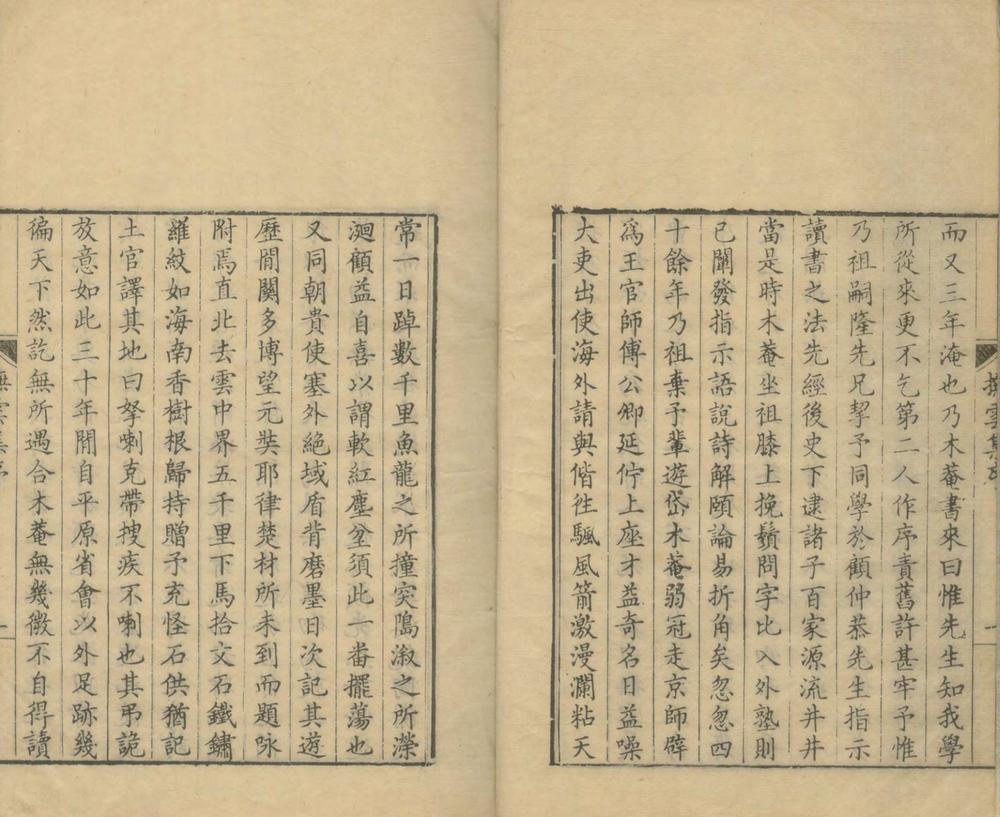 而又三年淹也乃木菴書來曰惟先生知我學
所從來更不乞第二人作序責舊許甚牢予惟
乃祖嗣隆先兄挈予同學於顧仲恭先生指示
讀書之法先經後史下逮諸子百家源流井井
當是時木菴坐祖膝上挽鬚問字比入外塾則
已闡發指示語說詩解頤論易折角矣忽忽四
十餘年乃祖棄予輩遊岱木菴弱冠走京師辟
爲王官師傅公卿延佇上座才益奇名日益噪
大吏出使海外請與偕往颿風箭激漫瀾粘天
常一日踔數千里魚龍之所撞突隝溆之所濴
洄顧益自喜以謂軟紅塵坌須此一番擺蕩也
又同朝貴使塞外絶域盾背磨墨日次記其遊
歷閒關多博望元奘耶律楚材所未到而題咏
附焉直北去雲中界五千里下馬拾文石鐵鏽
羅紋如海南香樹根歸持贈予充怪石供猶記
土官譯其地曰拏喇克帶搜疾不喇也其弔詭
放意如此三十年閒自平原省會以外足跡幾
徧天下然訖無所遇合木菴無幾微不自得讀